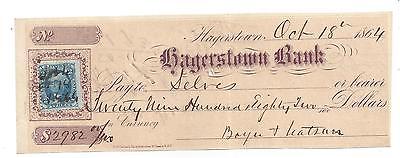 No
Hagerstown, Oct 18th 1864
Hagerstown Bank
Pay to Selves or bearer
Twenty Nine Hundred Eighty Two Dollars
in Currency
$2982 00/100